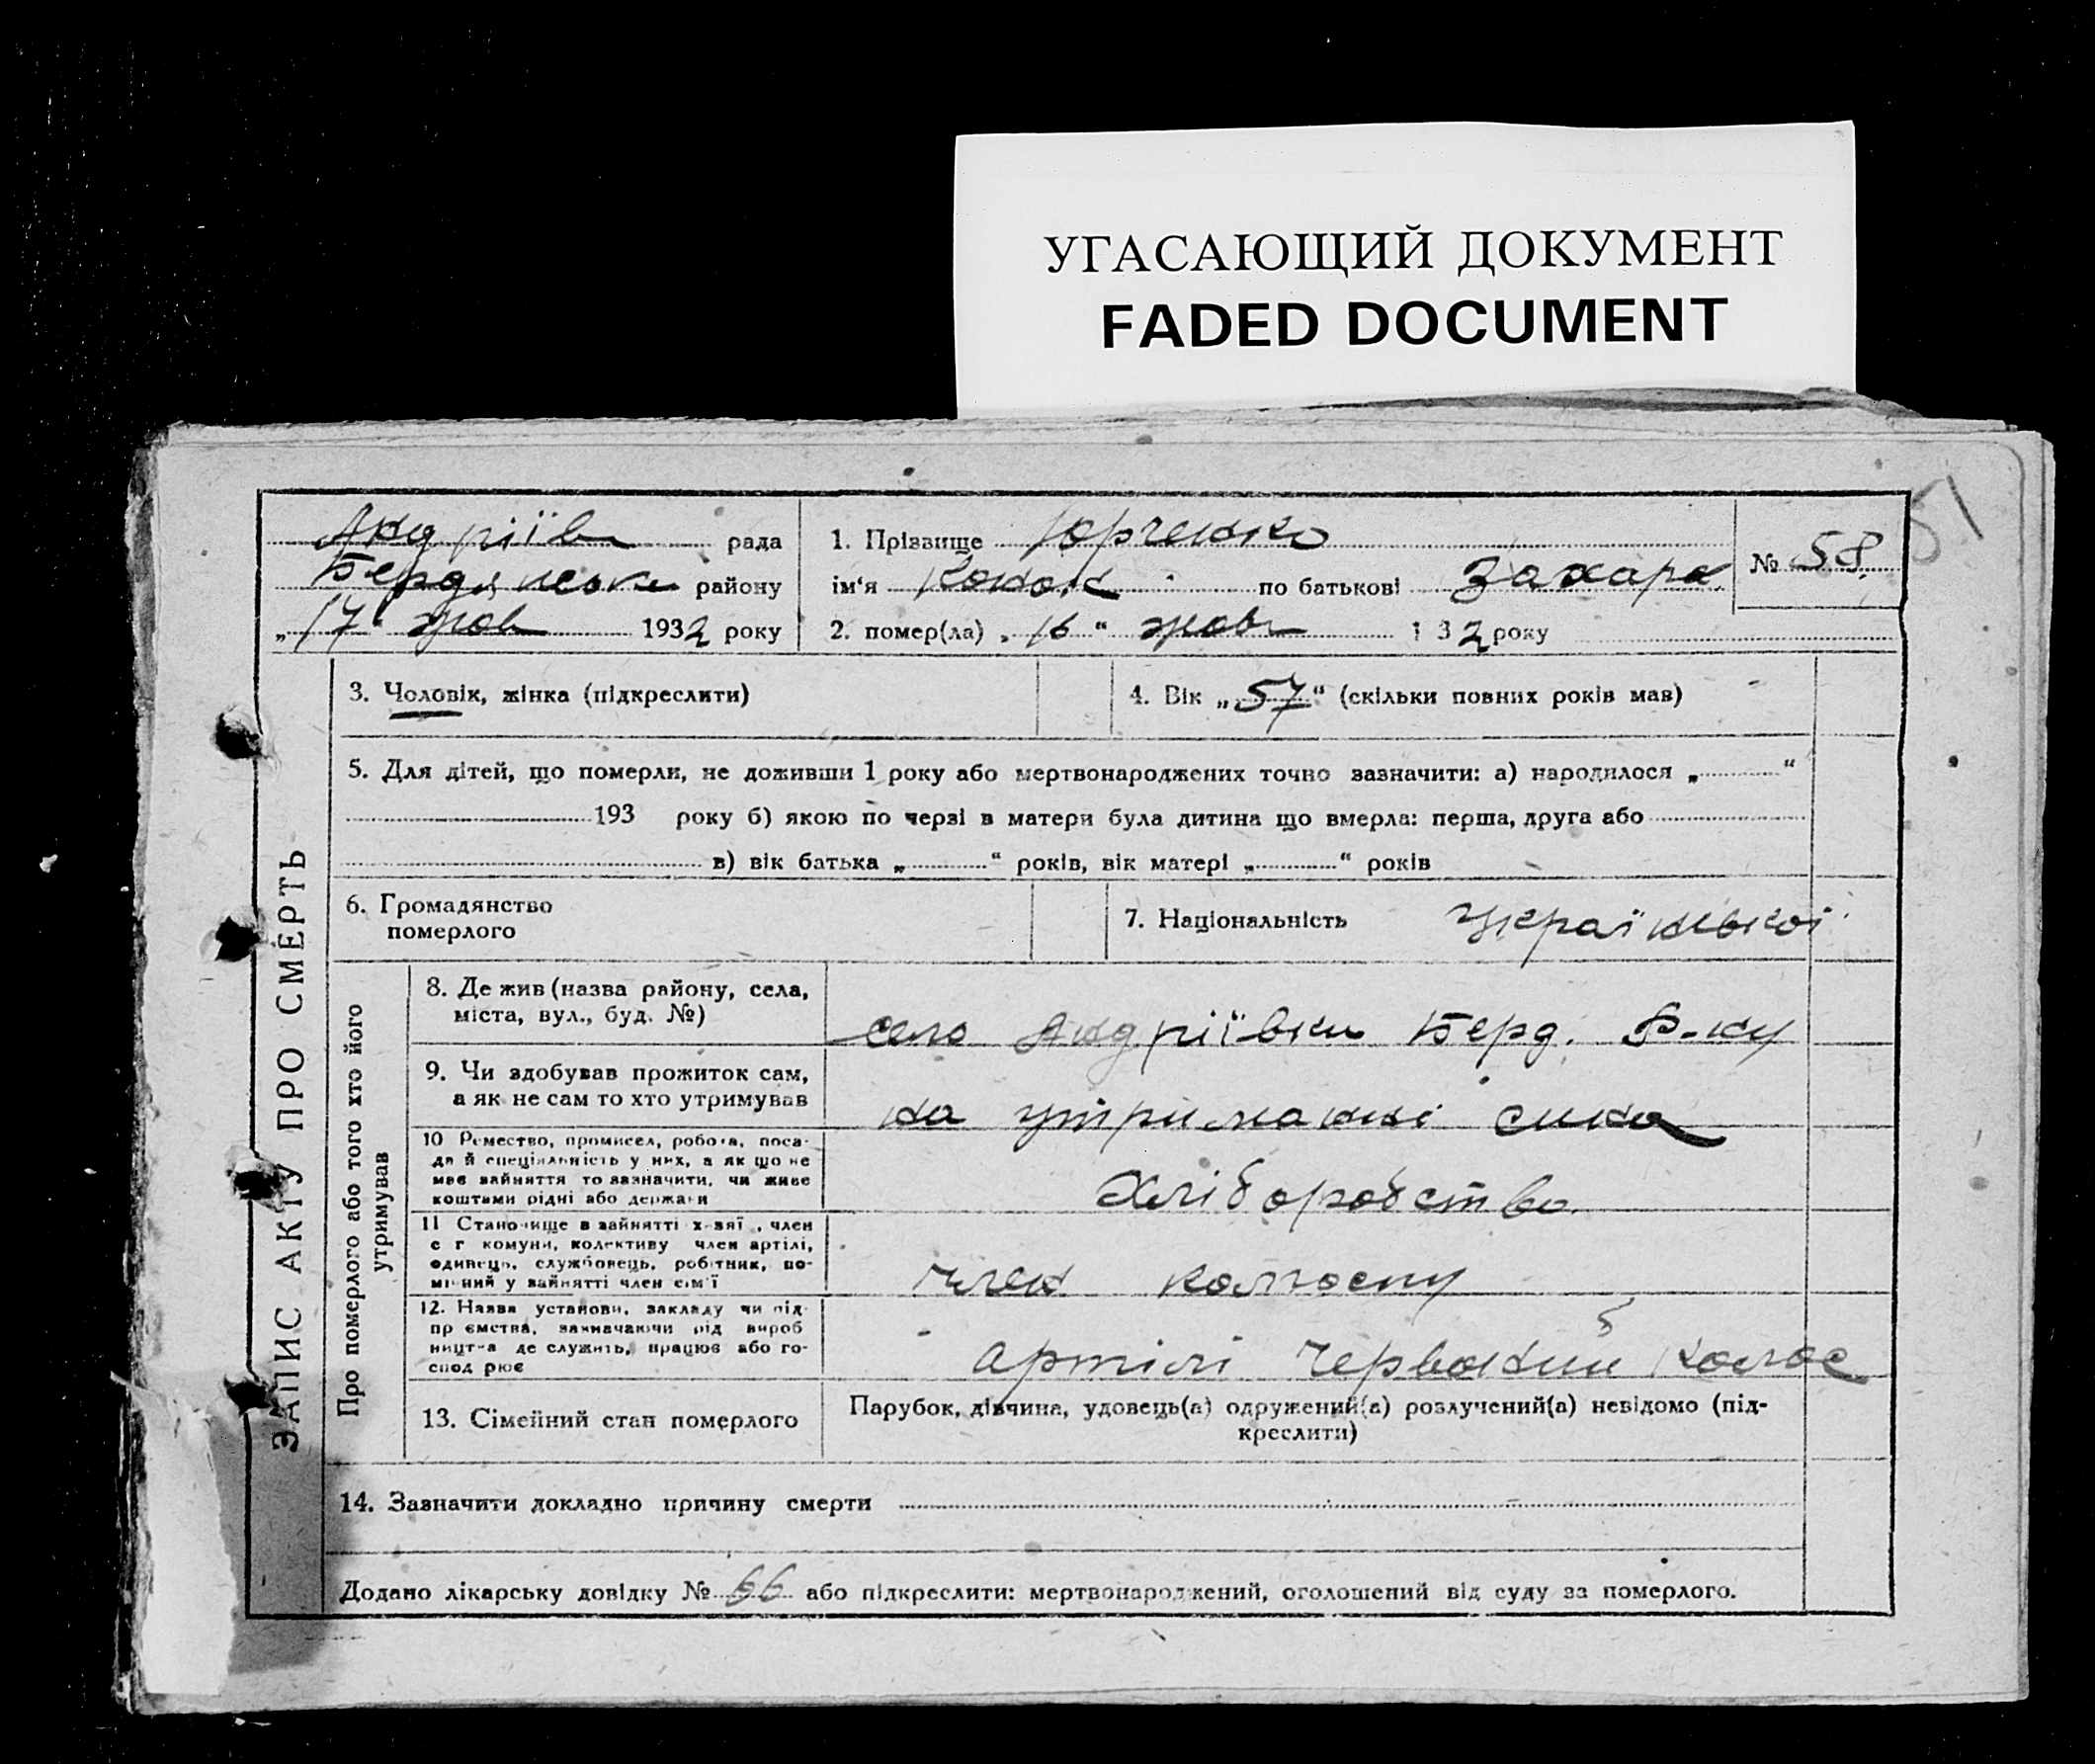 УГАСАЮЩИЙ ДОКУМЕНТ
FADED DOCUMENT
51
Андріїв рада
Бердянськ району
„17“ жов 1932 року
1. Прізвище Юрченко
ім‘я Конон по батькові Захара
№ 58
2. помер(ла) „16“ жовт 1 32 року
ЗАПИС АКТУ ПРО СМЕРТЬ
3. Чоловік, жінка (підкреслити)
4. Вік „57“ (скільки повних років мав)
5. Для дітей, що померли, не доживши 1 року або мертвонароджених точно зазначити: а) народилося „ “
193 року б) якою по черзі в матери була дитина що вмерла: перша, друга або
в) вік батька „ “ років, вік матері „ “ років
6. Громадянство
померлого
7. Національність Української
Про померлого або того хто його
утримував
8. Де жив (назва району, села,
міста, вул., буд. №)
село Андріївки Берд. Р-ну
9. Чи здобував прожиток сам,
а як не сам то хто утримував
на утриманні сина
10 Ремество, промисел, робота, поса-
да й спеціяльність у них, а як що не
має зайняття то зазначити, чи живе
коштами рідні або держави
Хліборобство
11 Становище в зайнятті х-зяї , член
с г комуни, колективу член артілі,
одинець, службовець, робітник, по-
мічний у зайнятті член сім‘ї
член колгоспу
12. Назва установи, закладу чи під-
пр ємства, зазначаючи рід вироб
ництва де служить, працює або го-
спод рює
артілі Червоний Колос
13. Сімейний стан померлого
Парубок, дівчина, удовець(а) одружений(а) розлучений(а) невідомо (під-
креслити)
14. Зазначити докладно причину смерти
Додано лікарську довідку № 66 або підкреслити: мертвонароджений, оголошений від суду за померлого.